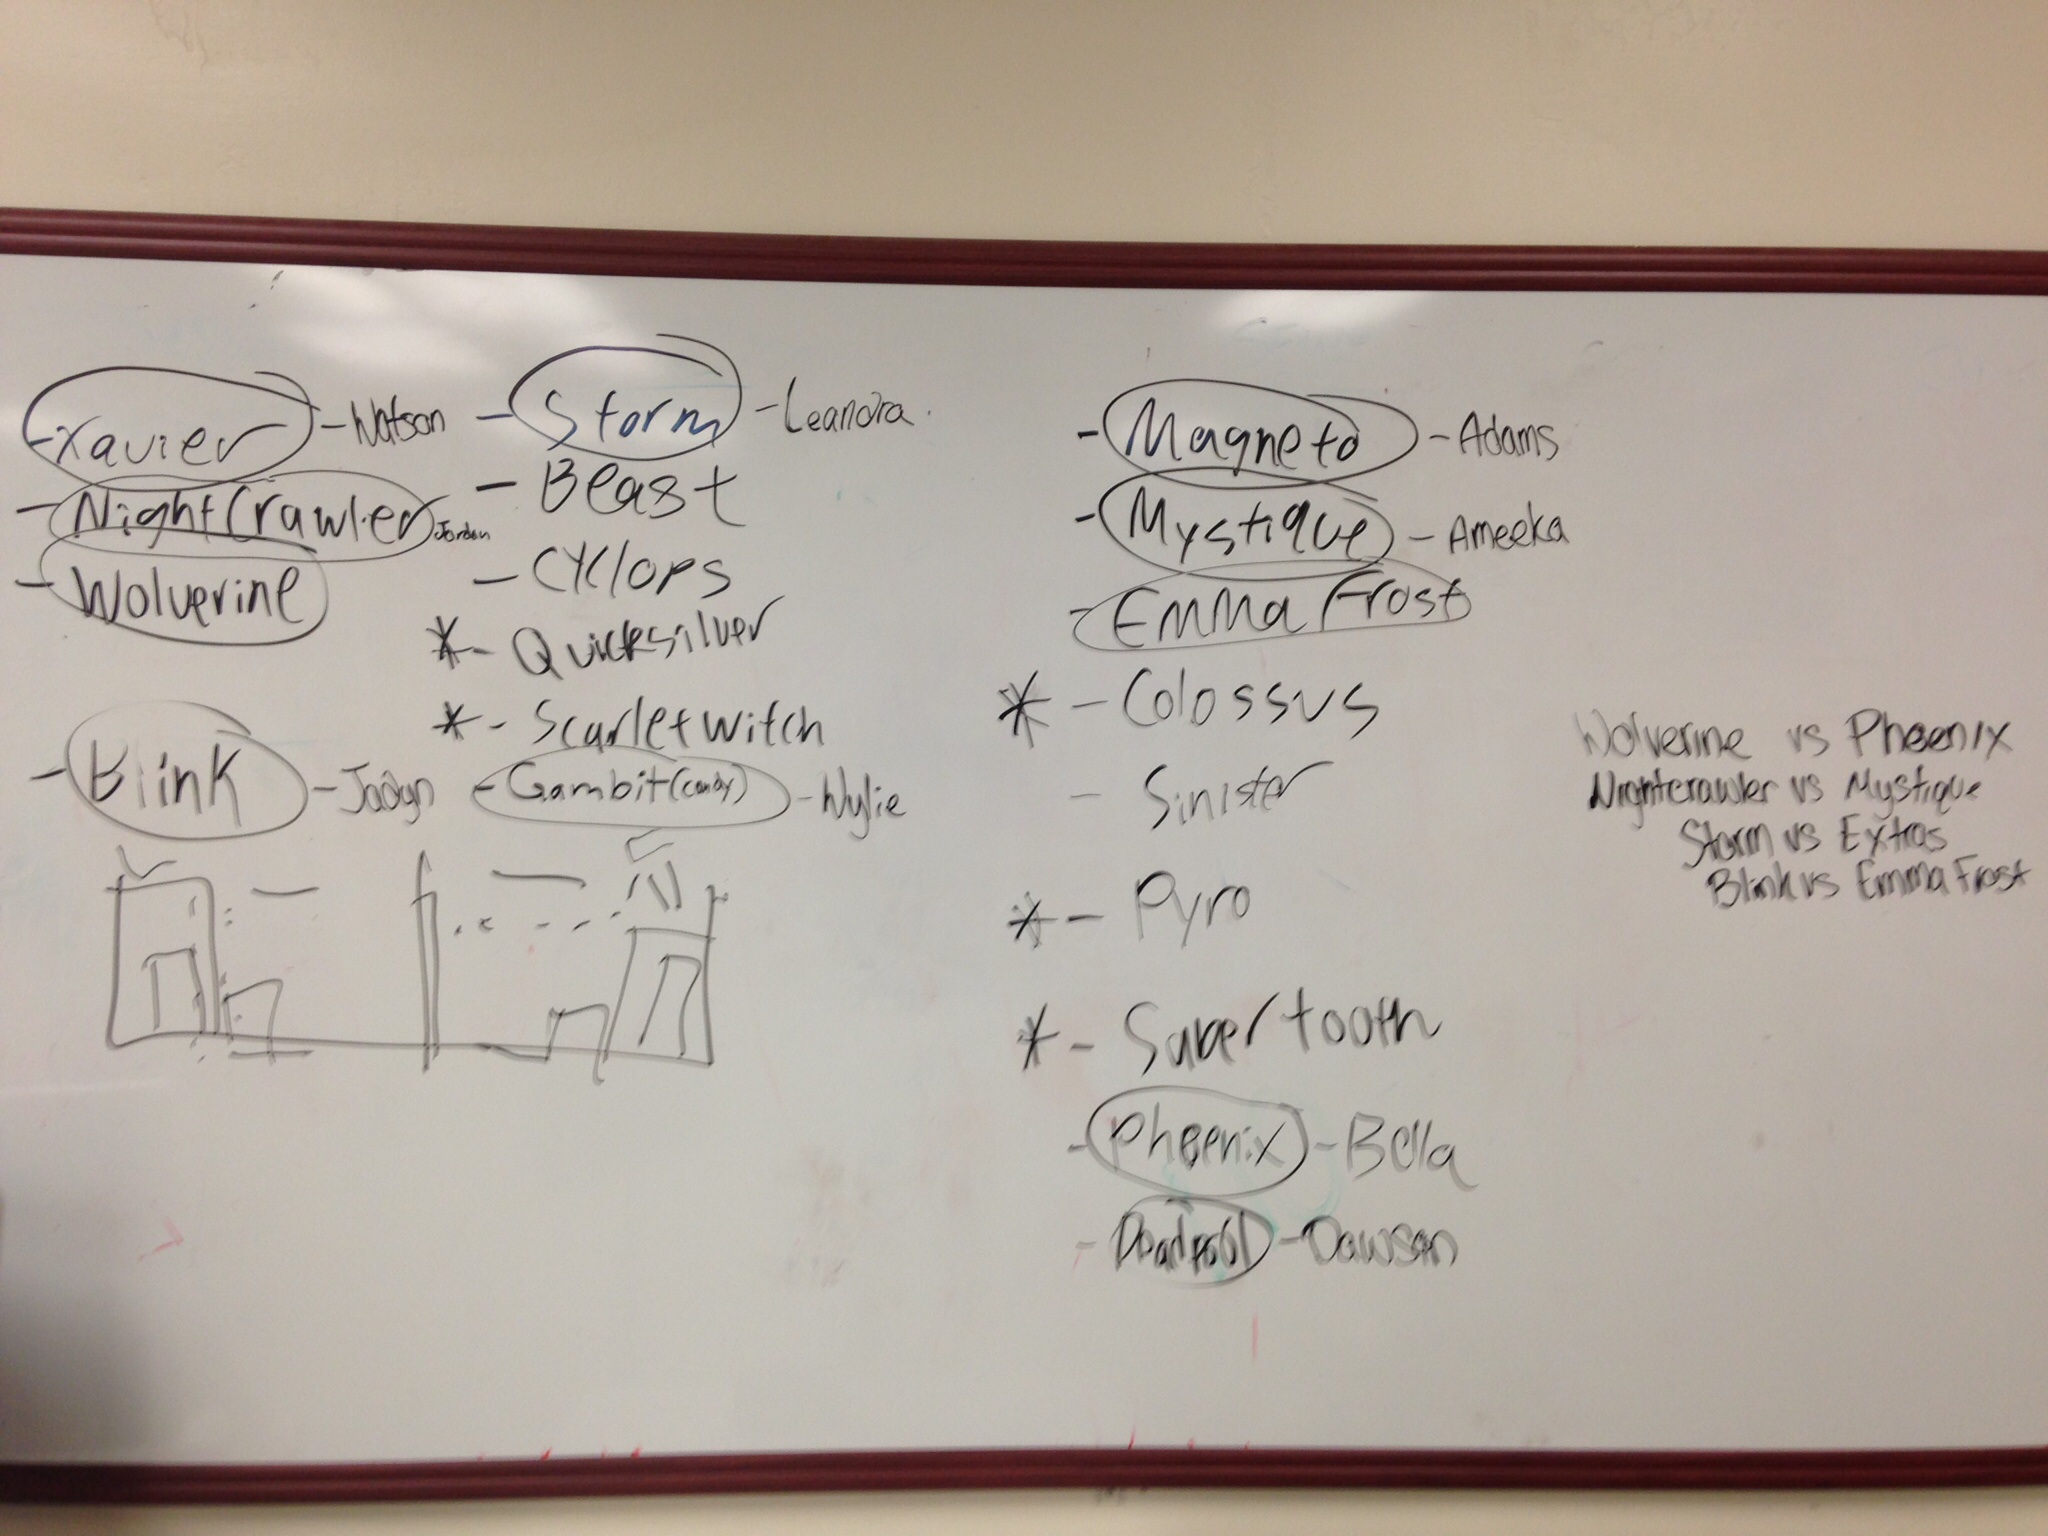 -Xavier -Watson
-NightCrawler Jordan
-Wolverine
-Blink -Jadyn
-Storm -Leandra.
-Beast
-Cyclops
*-Quicksilver
*-Scarletwitch
-Gambit(candy) -Wylie
-Magneto -Adams
-Mystique -Ameeka
-Emma Frost
*-Colossus
-Sinister
*-Pyro
*-Sabertooth
-Pheenix -Bella
-Deadpool -Dawson
Wolverine vs Pheenix
Nightcrawler vs Mystique
Storm vs Extras
Blink vs Emma Frost